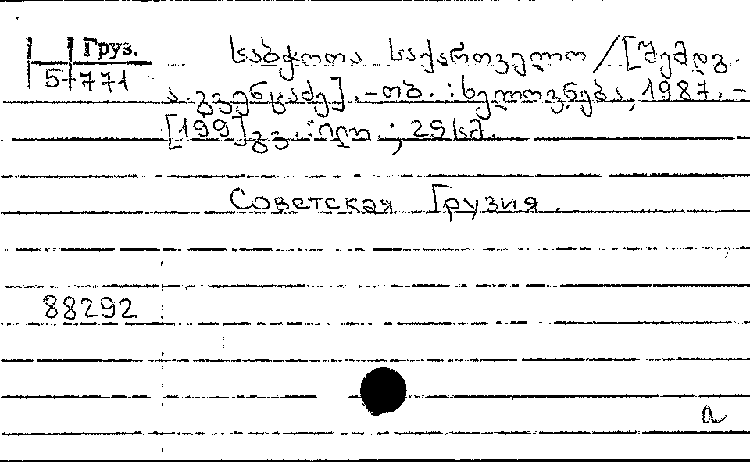 Груз.
5-771
საბჭოთა საქართველო / [შემდგ.
ა. გვენცაძე]. - თბ. : ხელოვნება, 1987. -
[199] გვ. : ილ. ; 29 სმ.
Советская Грузия.
88292
а